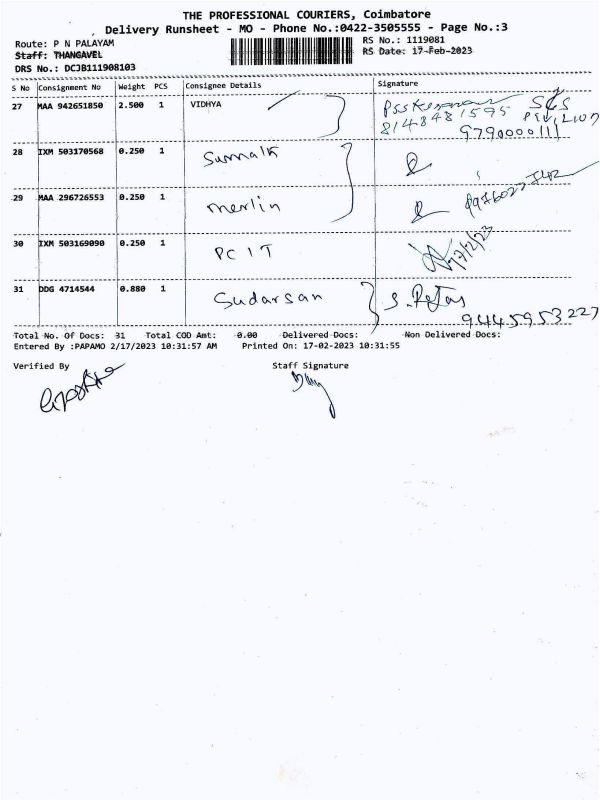 THE PROFESSIONAL COURIERS, Coimbatore
Delivery Runsheet - MO - Phone No.:0422-3505555 - Page No.:3
Route: P N PALAYAM
RS No.: 1119081
Staff: THANGAVEL
RS Date: 17-Feb-2023
DRS No.: DCJB111908103
S No Consignment No Weight PCS Consignee Details Signature
27 MAA 942651850 2.500 1 VIDHYA
8148481595
9790000111
28 IXM 503170568 0.250 1
29 MAA 296726553 0.250 1 merlin
30 IXM 503169090 0.250 1 PC IT
17/2/23
31 DDG 4714544 0.880 1 Sudarsan
9445953227
Total No. Of Docs: 31 Total COD Amt: 0.00 Delivered Docs: Non Delivered Docs:
Entered By :PAPAMO 2/17/2023 10:31:57 AM Printed On: 17-02-2023 10:31:55
Verified By Staff Signature